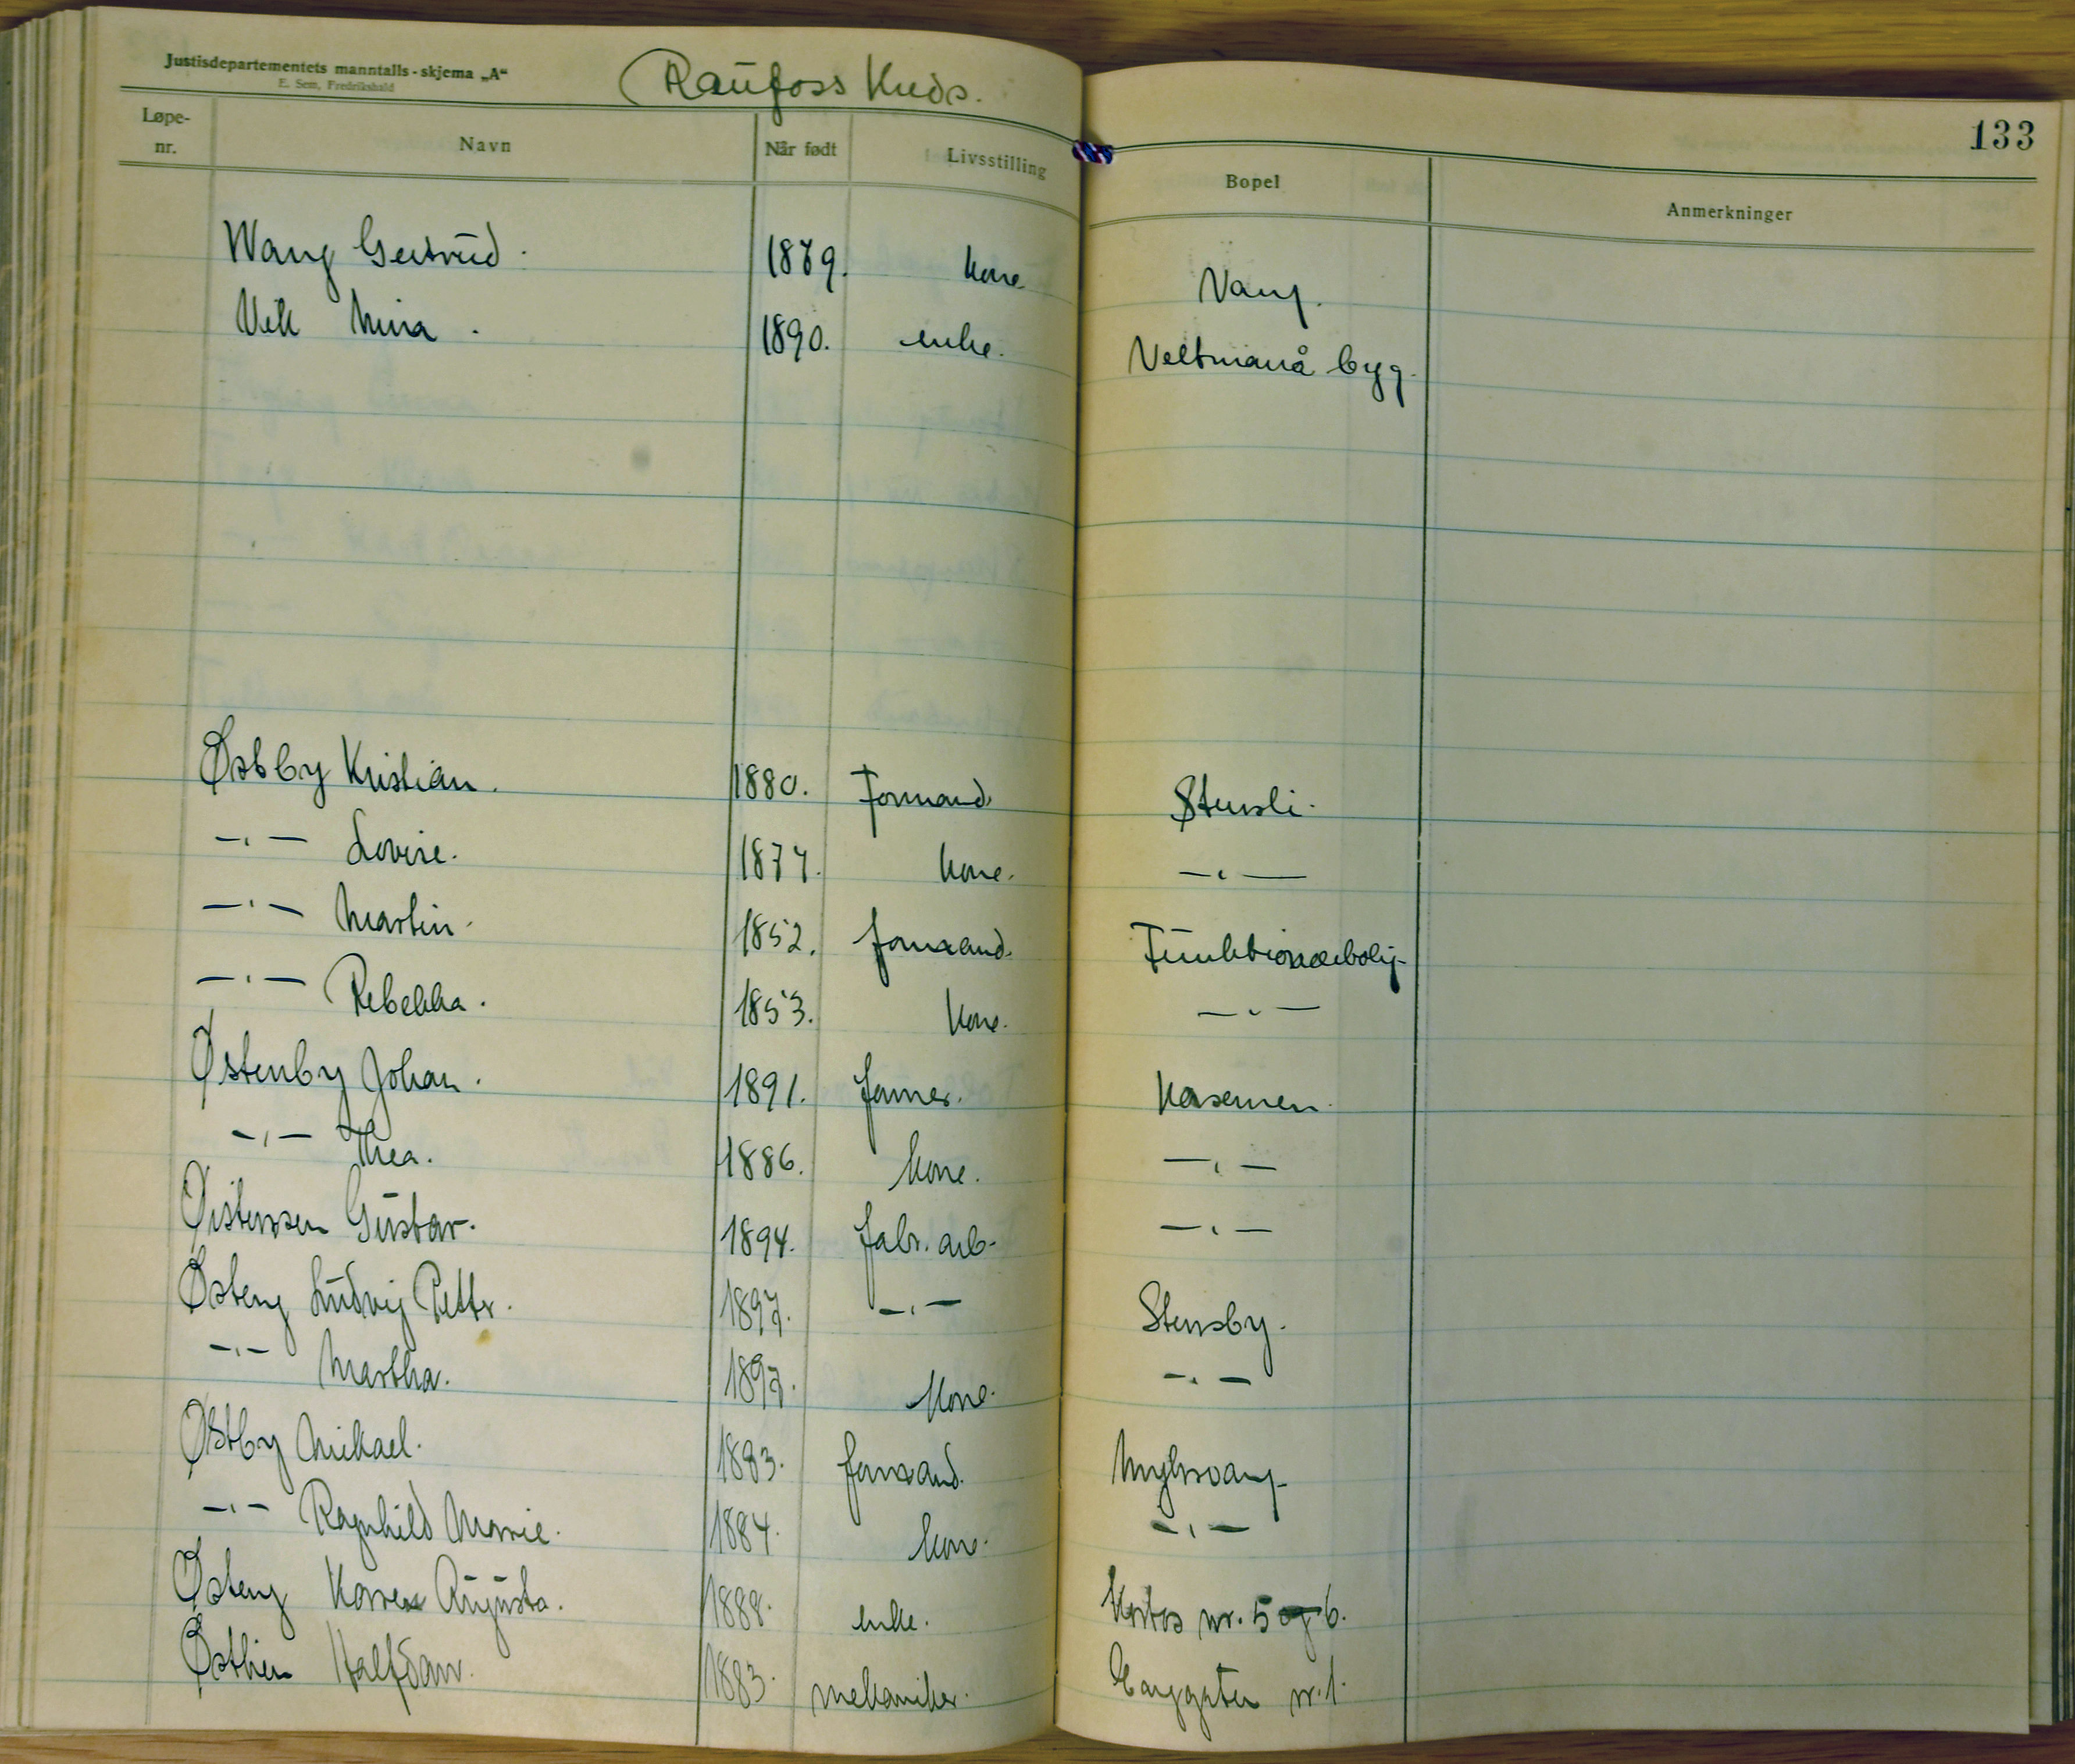 Justisdepartementets manntalls-skjema „A“
E. Sem, Fredrikshald
Raufoss Kreds.
133
Løpe-nr. Navn Når født Livsstilling Bopel Anmerkninger
Wang Gertrud. 1879. kone. Vang.
Vik Mina. 1890. enke. Veltmanå byg.
Østby Kristian. 1880. Formand. Stensli.
—„— Lovise. 1877. kone. —„—
—„— Martin. 1852. formand. Funktionærbolig
—„— Rebekka. 1853. kone. —„—
Østenby Johan. 1891. former. Kasernen.
—„— Thea. 1886. kone. —„—
Øistensen Gustav. 1894. fabr. arb. —„—
Østeng Ludvig Petter. 1897. —„— Stensby.
—„— Martha. 1897. kone. —„—
Østby Mikael. 1883. formand. —„—
—„— Ragnhild Marie. 1884. kone. —„—
Østeng Karen Augusta. 1888. enke. nr. 5 og 6.
Østlien Halfdan. 1883. mekaniker. nr. 1.